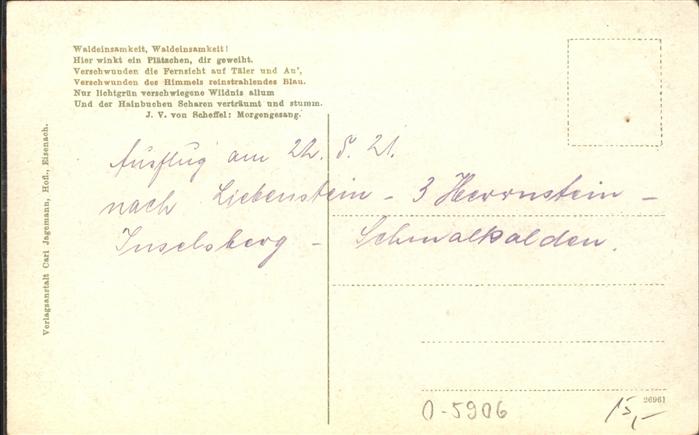 Waldeinsamkeit, Waldeinsamkeit!
Hier winkt ein Plätzchen, dir geweiht.
Verschwunden die Fernsicht auf Täler und Au',
Verschwunden des Himmels reinstrahlendes Blau.
Nur lichtgrün verschwiegene Wildnis allum
Und der Hainbuchen Scharen verträumt und stumm.
J. V. von Scheffel: Morgengesang.
Ausflug am 22. 8. 21.
nach Liebenstein – 3 Herrnstein –
Inselsberg – Schmalkalden.
Verlagsanstalt Carl Jagemann, Hofl., Eisenach.
26961
0-5906
15,-